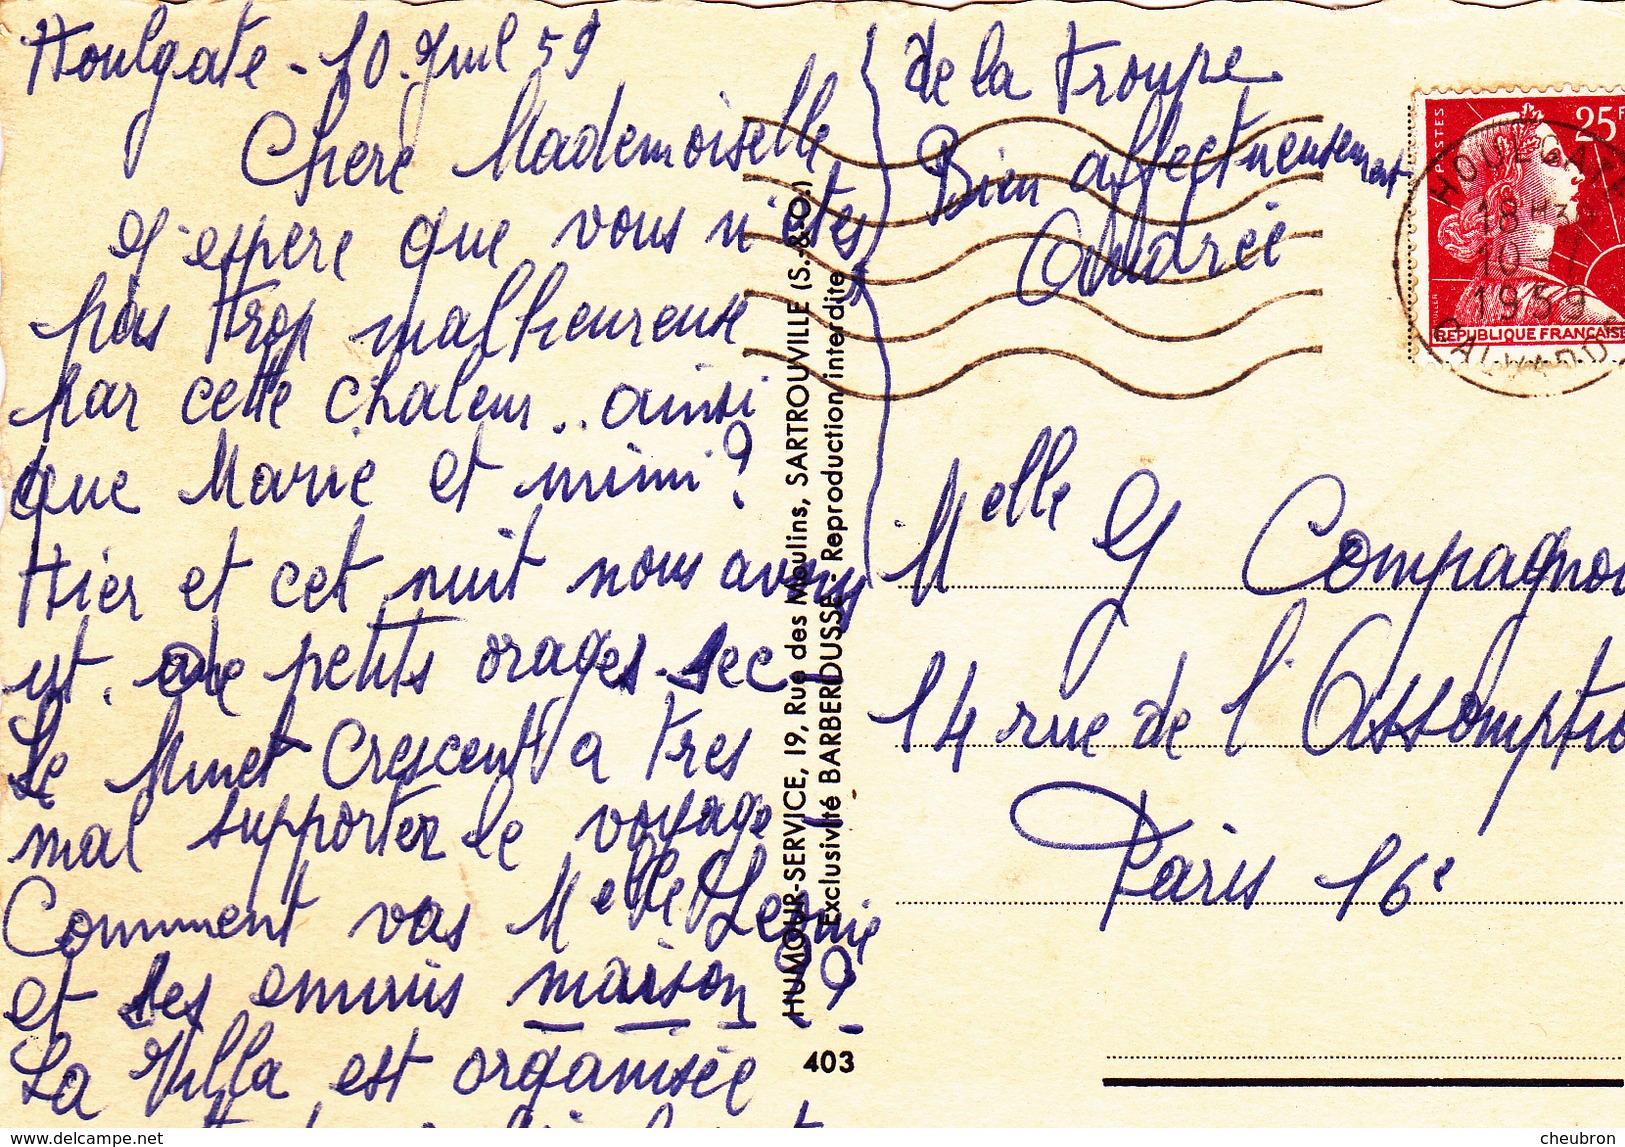 Houlgate - 10. Juil 59
Chere Mademoiselle
J'espere que vous n'etes
pas trop malheureuse
par cette chaleur.. ainsi
que Marie et mimi ?
Hier et cet nuit nous avons
ut. de petits orages. sec
Le Minet Crescent a tres
mal supporter le voyage
Comment vas Melle Leonie
et ses ennuis maison ?
La Villa est organisée
de la troupe
Bien affectueusement
Andrée
HUMOUR-SERVICE, 19, Rue des Moulins, SARTROUVILLE (S.-&-O.)
Exclusivité BARBERDUSSE - Reproduction interdite
403
POSTES
25F
REPUBLIQUE FRANÇAISE
HOULGATE
18H30
10-7
1959
CALVADOS
Melle G Compagnon
14 rue de l'Assomptio
Paris 16e
www.delcampe.net
cheubron